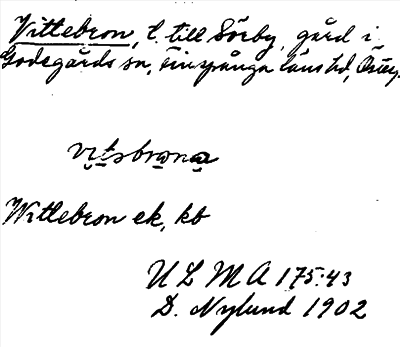 Vittebron, t. till Sörby, gård i
Godegårds sn, Finspånga läns hd, Östg.
vitsbrona
Wittebron ek, kb
U L M A 175:43
D. Nylund 1902